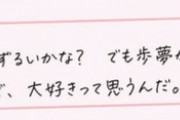 ずるいかな? でも歩夢
、大好きって思うんだ。